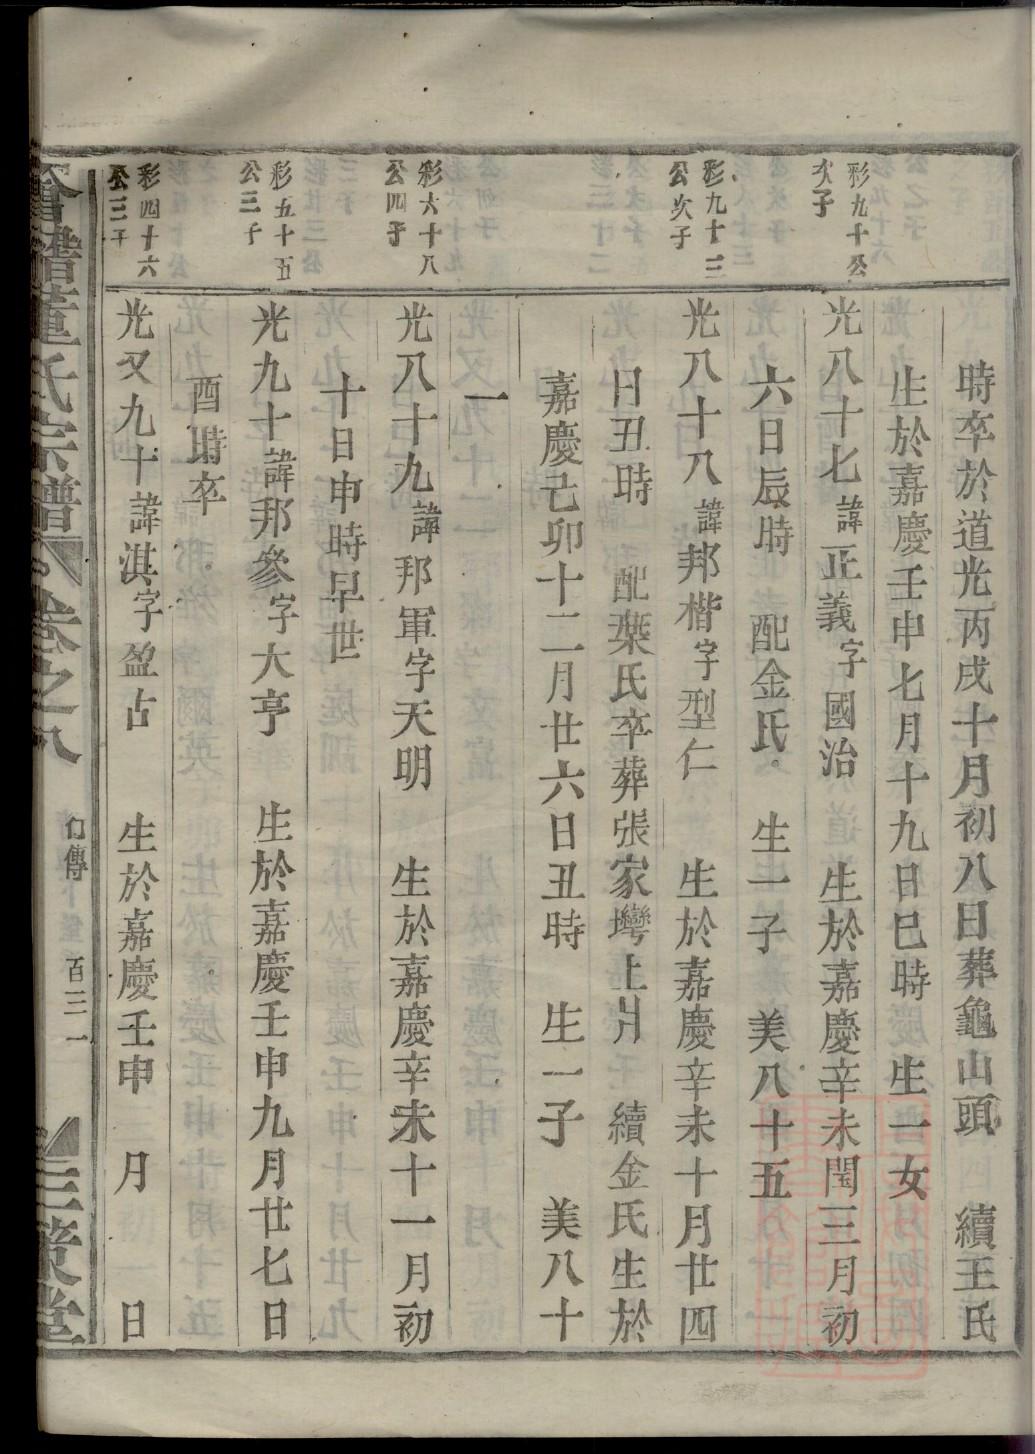 時卒於道光丙戌十月初八日葬龜山頭　續王氏
生於嘉慶壬申七月十九日巳時　生一女
彩九十公
次子
光八十七諱正義字國治　生於嘉慶辛未閏三月初
六日辰時　配金氏　生一子　美八十五
彩九十三
公次子
光八十八諱邦楷字型仁　生於嘉慶辛未十月廿四
日丑時　配葉氏卒葬張家塆上爿　續金氏生於
嘉慶己卯十二月廿六日丑時　生一子　美八十
一
彩六十八
公四子
光八十九諱邦軍字天明　生於嘉慶辛未十一月初
十日申時早世
彩五十五
公三子
光九十諱邦參字大亨　生於嘉慶壬申九月廿七日
酉時卒
彩四十六
公三子
光又九十諱淇字盈占　生於嘉慶壬申　月　日
會稽董氏宗譜　卷之八　傳　百三一　三策堂